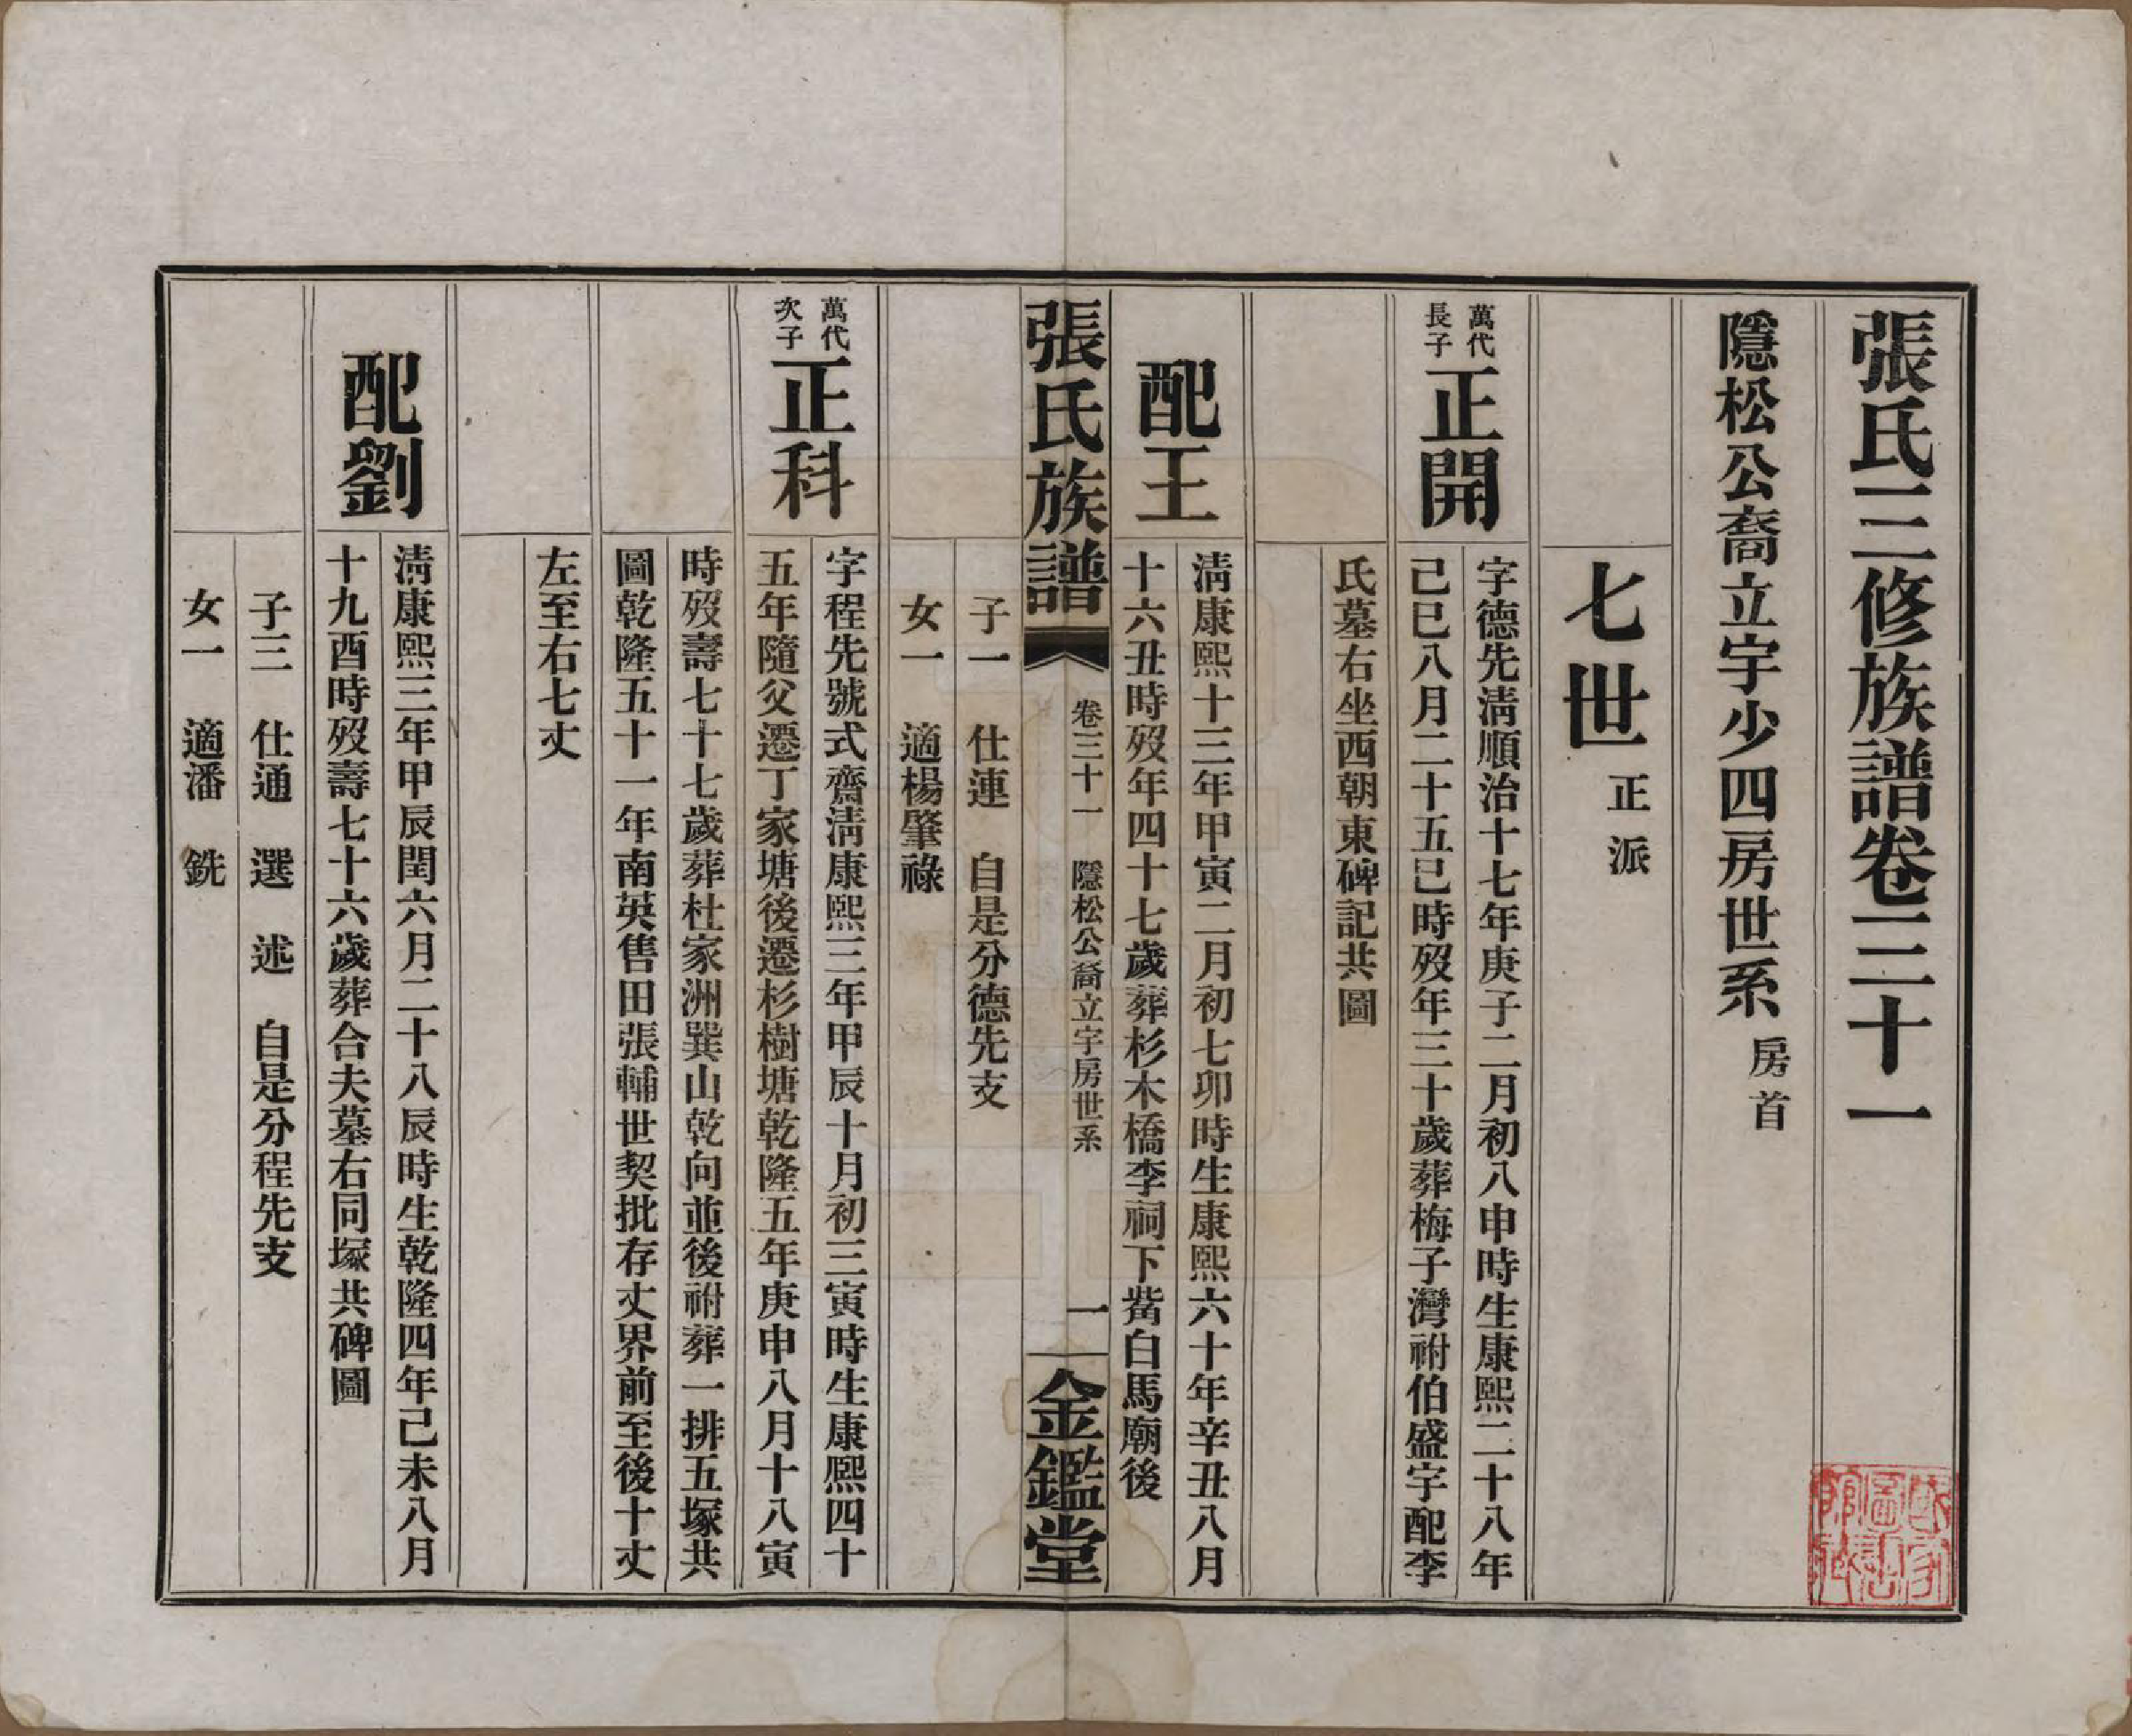 張氏三修族譜卷三十一
隱松公裔立宇少四房世系房首
七世正派
萬代
長子
正開
字德先清順治十七年庚子二月初八申時生康熙二十八年
己巳八月二十五巳時歿年三十歲葬梅子灣祔伯盛字配李
氏墓右坐西朝東碑記共圖
配王
清康熙十三年甲寅二月初七卯時生康熙六十年辛丑八月
十六丑時歿年四十七歲葬杉木橋李祠下觜白馬廟後
張氏族譜
卷三十一 隱松公裔立宇房世系
一
金鑑堂
子一 仕連 自是分德先支
女一 適楊肇祿
萬代
次子
正科
字程先號式齋清康熙三年甲辰十月初三寅時生康熙四十
五年隨父遷丁家塘後遷杉樹塘乾隆五年庚申八月十八寅
時歿壽七十七歲葬杜家洲巽山乾向並後祔葬一排五塚共
圖乾隆五十一年南英售田張輔世契批存丈界前至後十丈
左至右七丈
配劉
清康熙三年甲辰閏六月二十八辰時生乾隆四年己未八月
十九酉時歿壽七十六歲葬合夫墓右同塚共碑圖
子三 仕通 選 述 自是分程先支
女一 適潘 銑